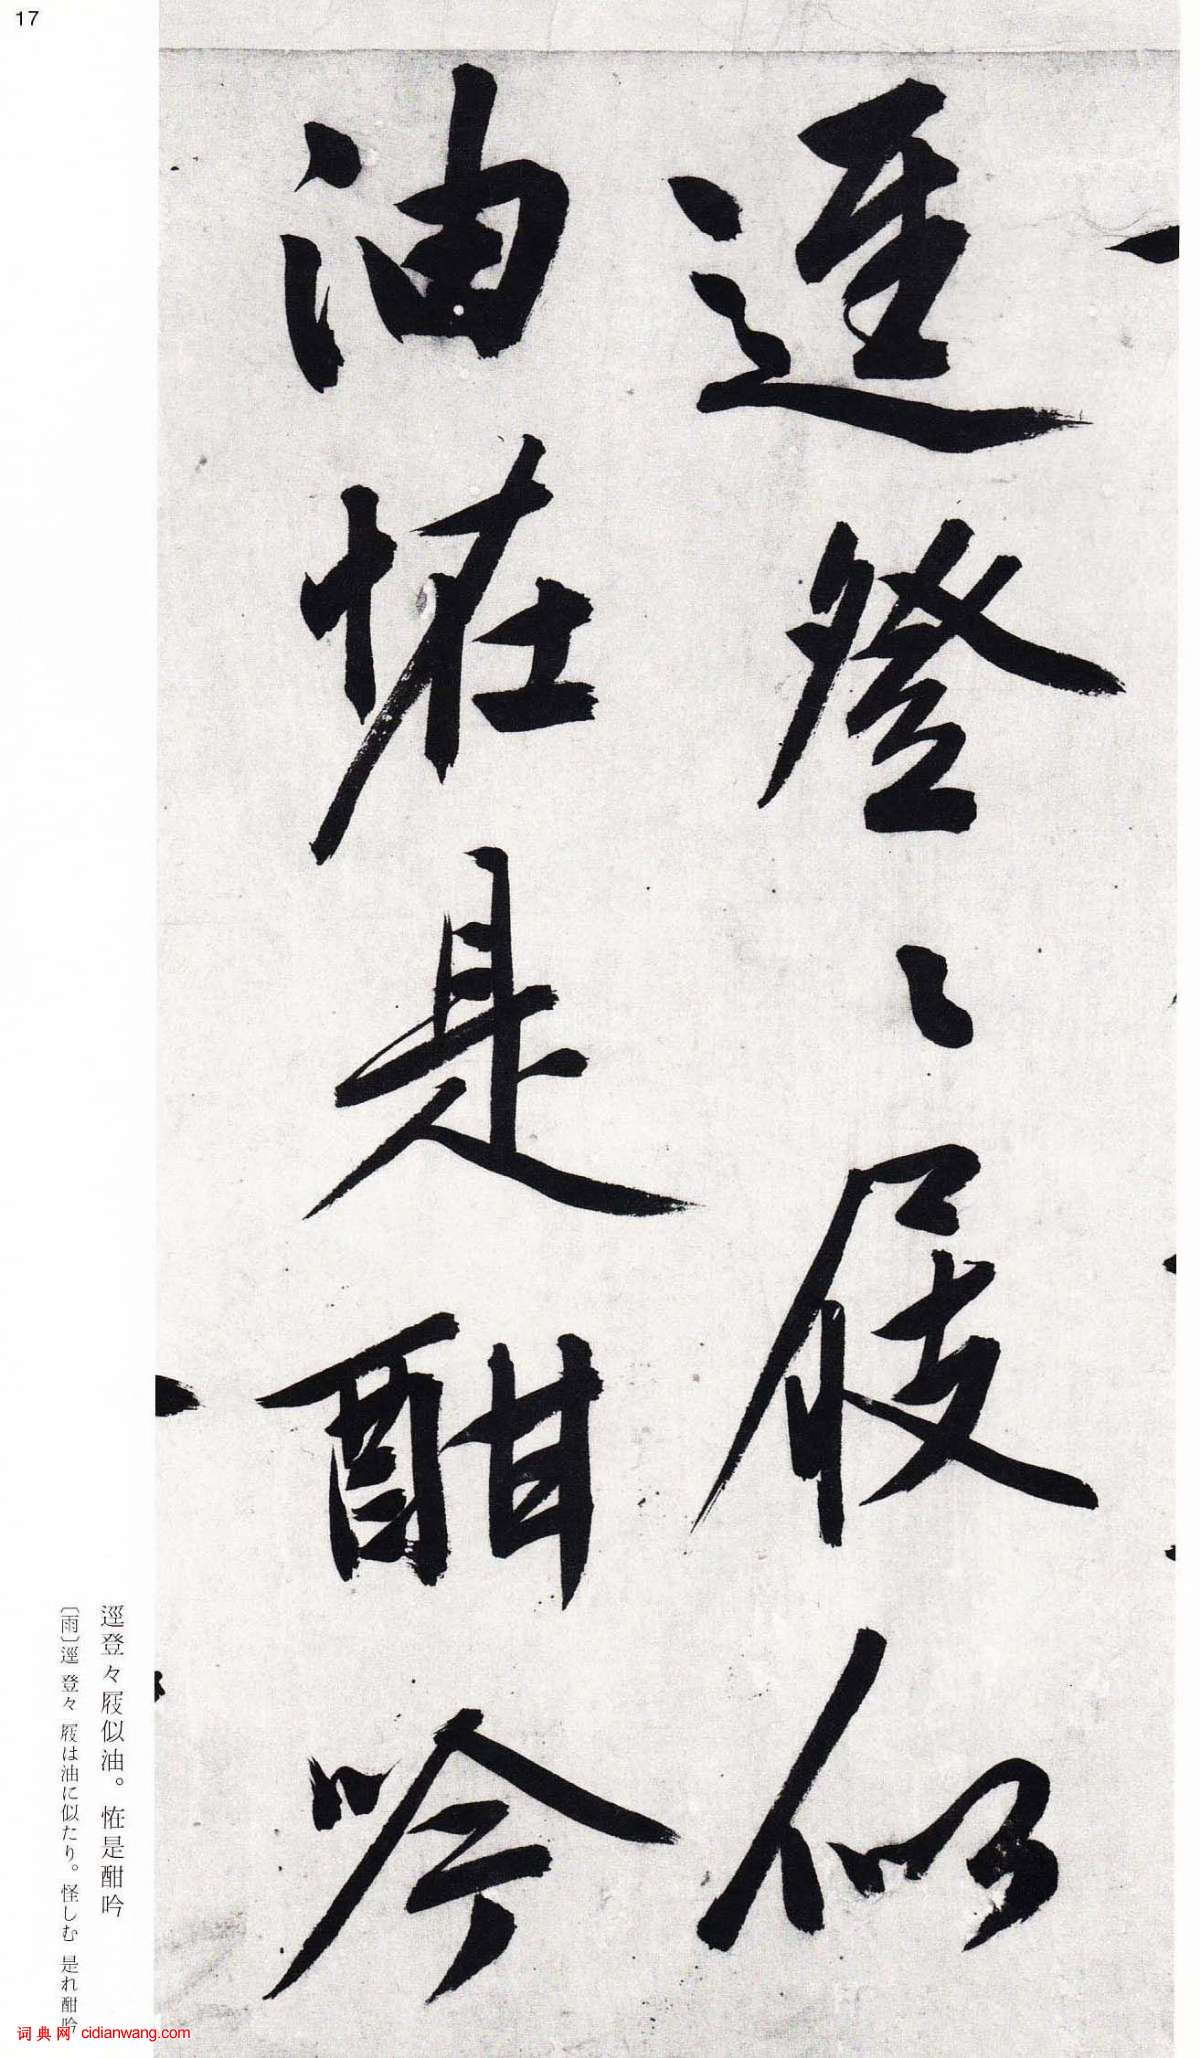 17
逕登〻屐似
油恠是酣吟
逕登々屐似油。恠是酣吟
〔雨〕逕 登々 屐は油に似たり。怪しむ 是れ酣吟
词典网 cidianwang.com